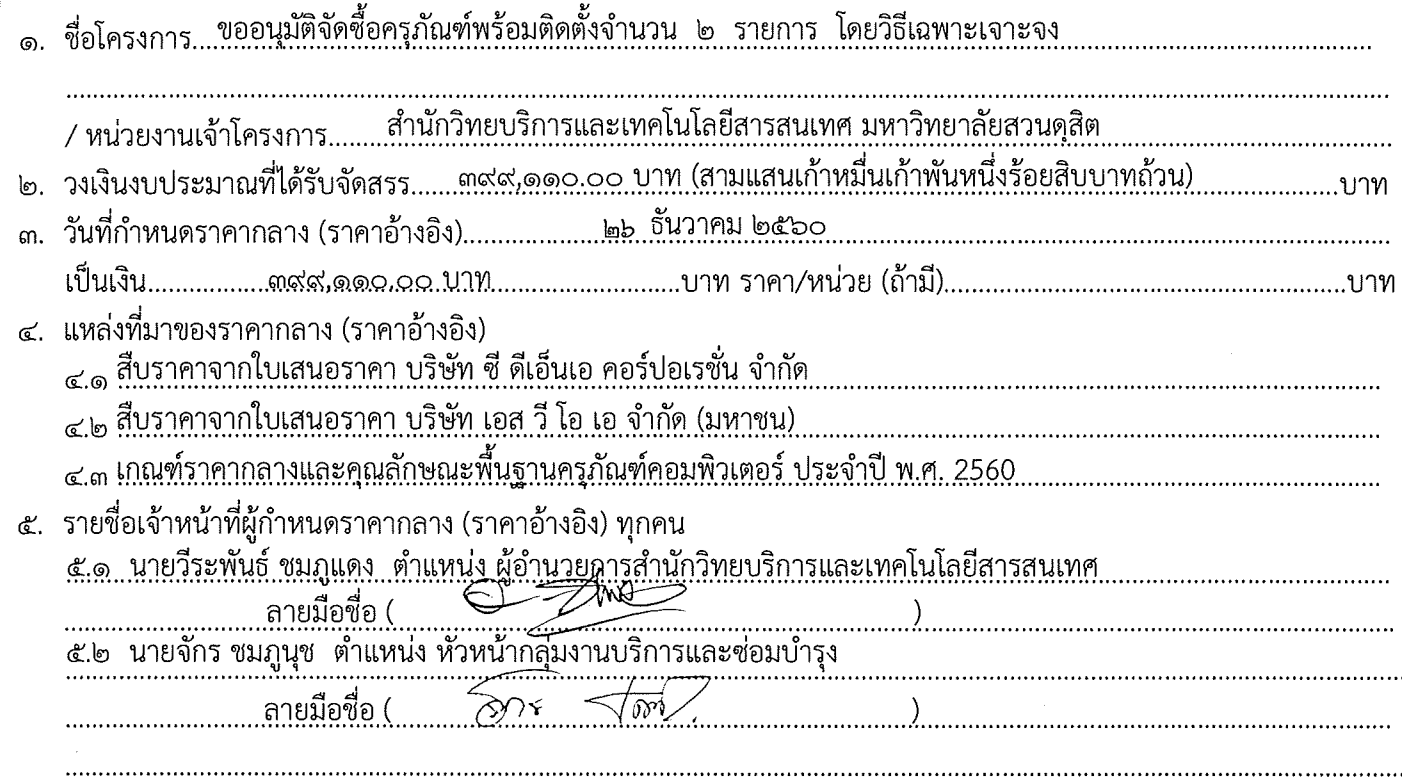 ๑. ชื่อโครงการ...ขออนุมัติจัดซื้อครุภัณฑ์พร้อมติดตั้งจำนวน ๒ รายการ โดยวิธีเฉพาะเจาะจง
/ หน่วยงานเจ้าโครงการ........สำนักวิทยบริการและเทคโนโลยีสารสนเทศ มหาวิทยาลัยสวนดุสิต
๒. วงเงินงบประมาณที่ได้รับจัดสรร......๓๙๙,๑๑๐.๐๐ บาท (สามแสนเก้าหมื่นเก้าพันหนึ่งร้อยสิบบาทถ้วน)......บาท
๓. วันที่กำหนดราคากลาง (ราคาอ้างอิง)......๒๖ ธันวาคม ๒๕๖๐
เป็นเงิน......๓๙๙,๑๑๐.๐๐ บาท......บาท ราคา/หน่วย (ถ้ามี)......บาท
๔. แหล่งที่มาของราคากลาง (ราคาอ้างอิง)
๔.๑ สืบราคาจากใบเสนอราคา บริษัท ซี ดีเอ็นเอ คอร์ปอเรชั่น จำกัด
๔.๒ สืบราคาจากใบเสนอราคา บริษัท เอส วี โอ เอ จำกัด (มหาชน)
๔.๓ เกณฑ์ราคากลางและคุณลักษณะพื้นฐานครุภัณฑ์คอมพิวเตอร์ ประจำปี พ.ศ. 2560
๕. รายชื่อเจ้าหน้าที่ผู้กำหนดราคากลาง (ราคาอ้างอิง) ทุกคน
๕.๑ นายวีระพันธ์ ชมภูแดง ตำแหน่ง ผู้อำนวยการสำนักวิทยบริการและเทคโนโลยีสารสนเทศ
ลายมือชื่อ ( )
๕.๒ นายจักร ชมภูนุช ตำแหน่ง หัวหน้ากลุ่มงานบริการและซ่อมบำรุง
ลายมือชื่อ ( )